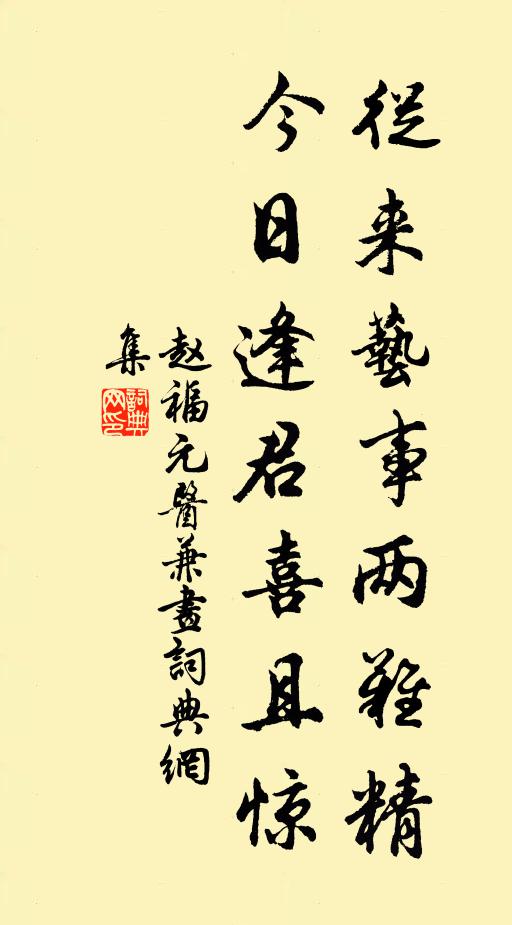 從来藝事两難精
今日逢君喜且惊
赵福元醫兼畫詞典網
集
詞典
网印